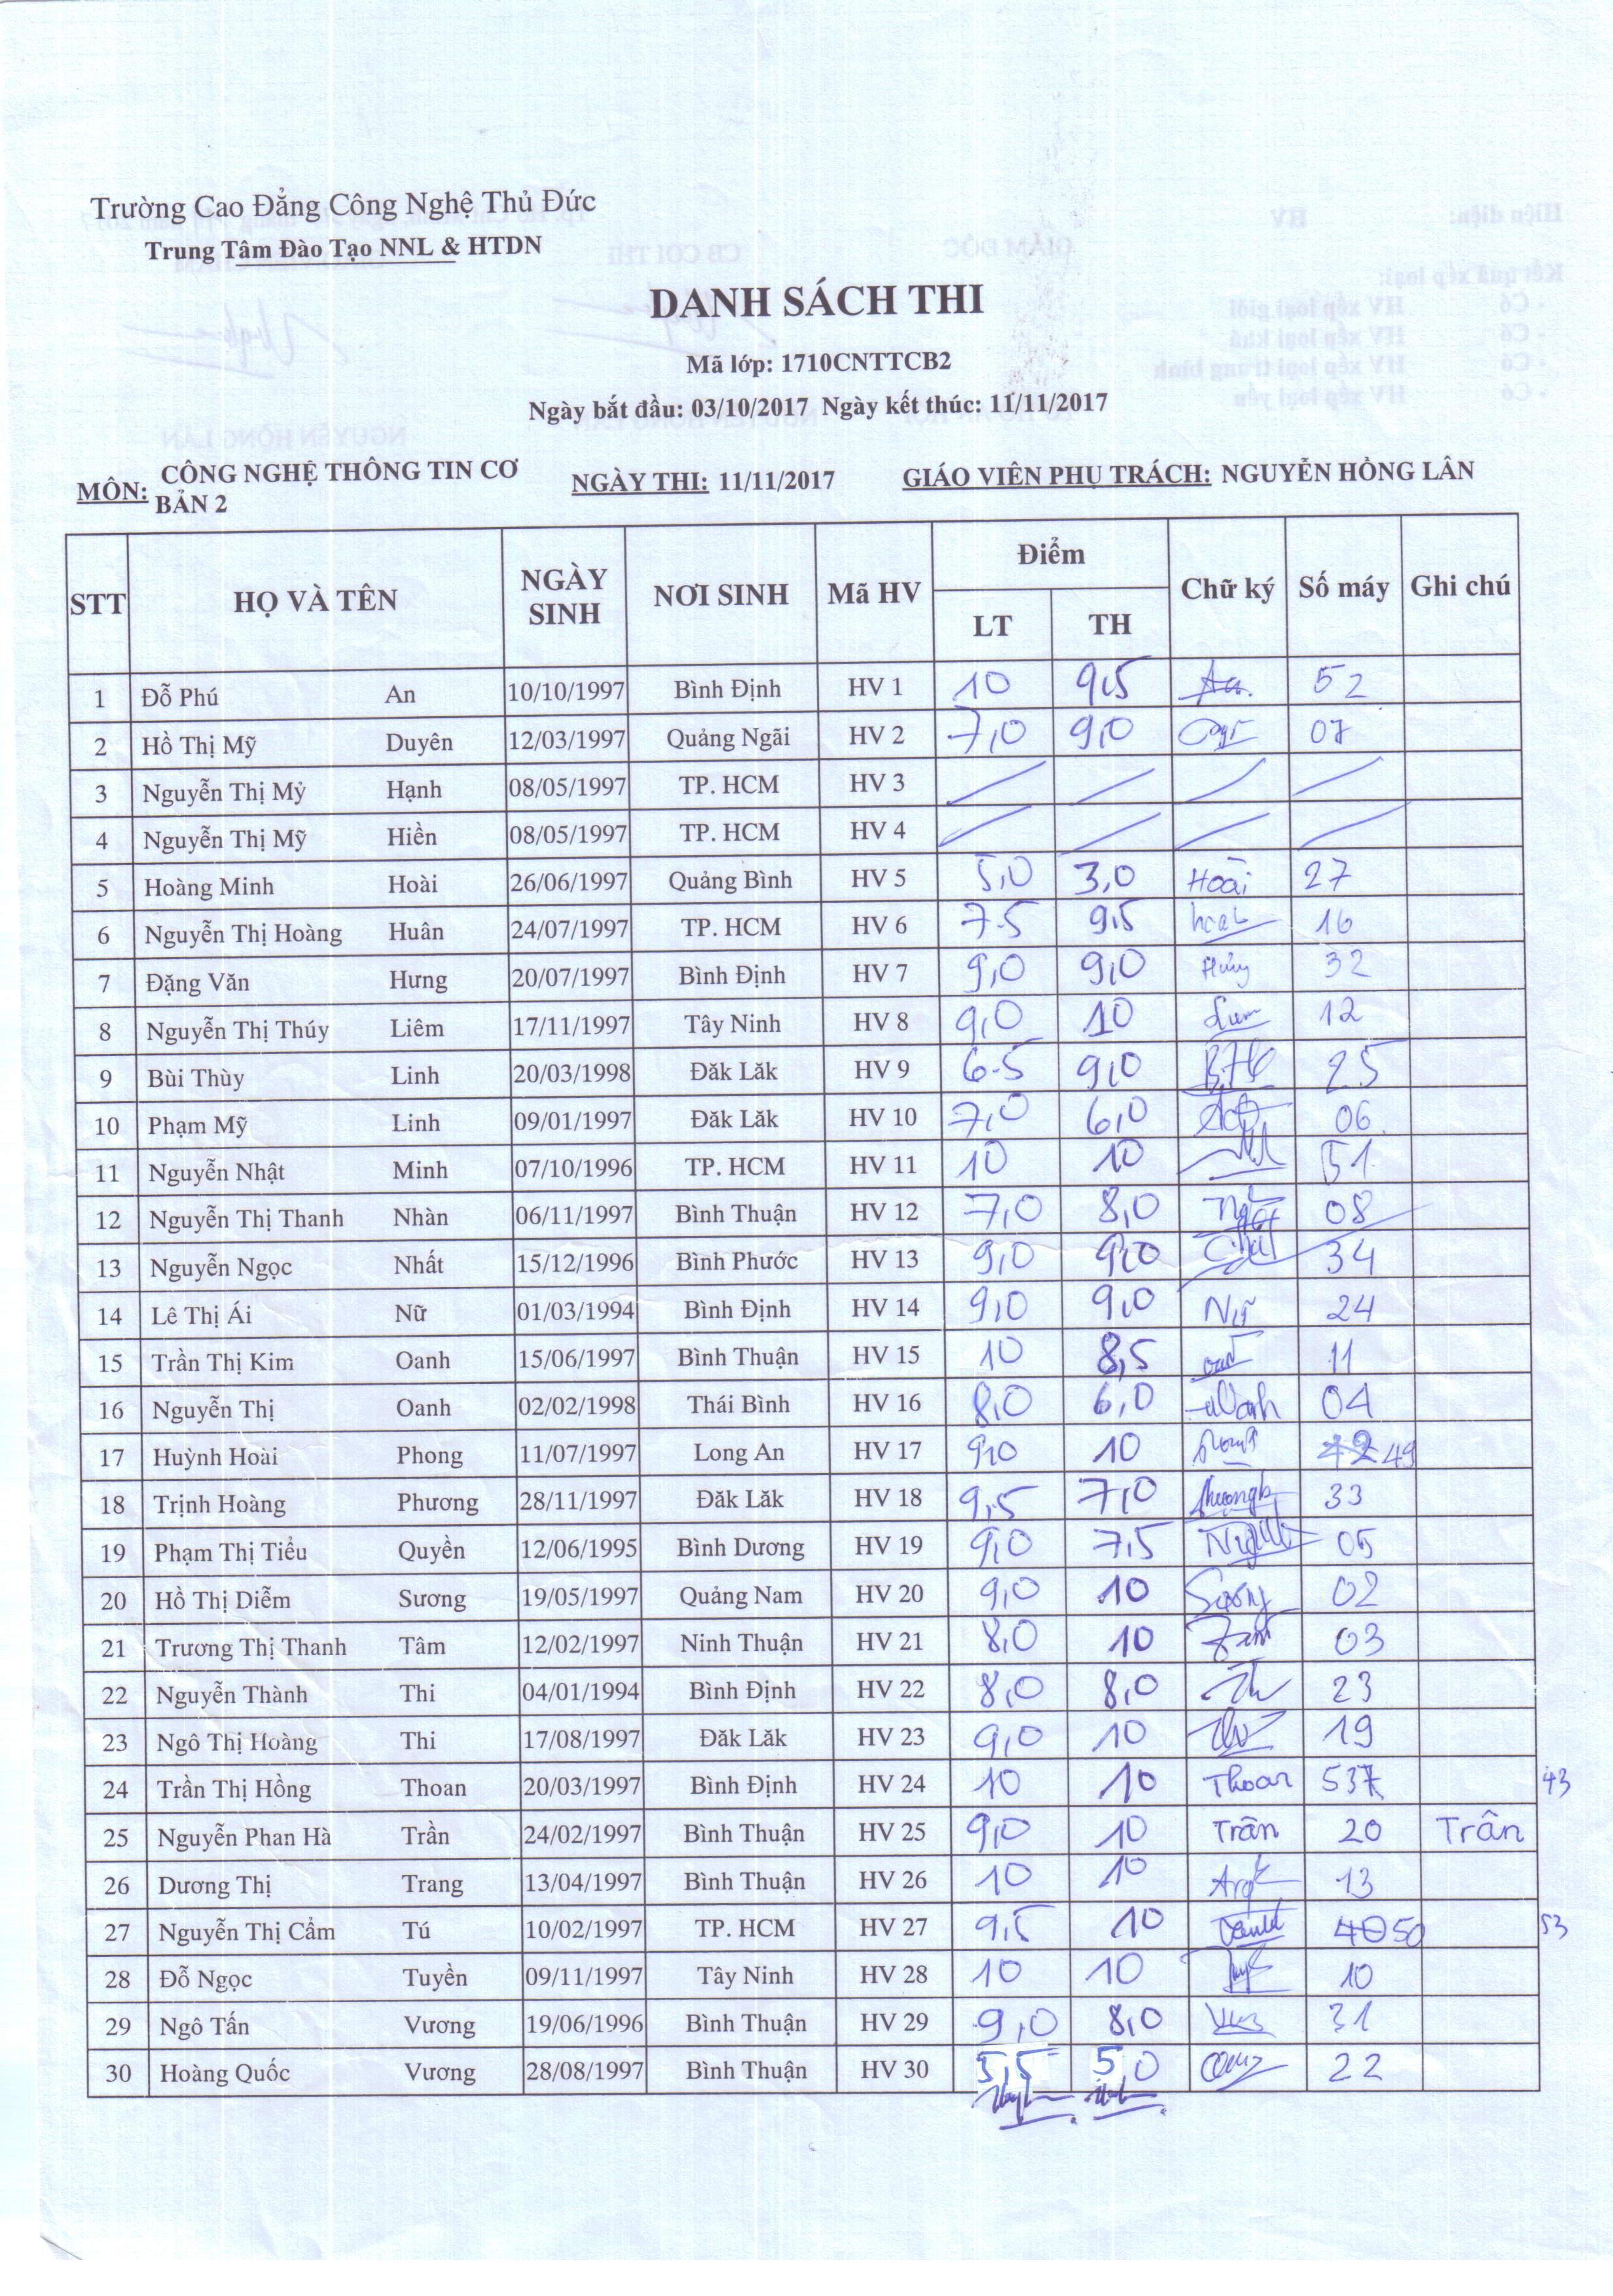 Trường Cao Đẳng Công Nghệ Thủ Đức
Trung Tâm Đào Tạo NNL & HTDN
DANH SÁCH THI
Mã lớp: 1710CNTTCB2
Ngày bắt đầu: 03/10/2017 Ngày kết thúc: 11/11/2017
MÔN: CÔNG NGHỆ THÔNG TIN CƠ BẢN 2 NGÀY THI: 11/11/2017 GIÁO VIÊN PHỤ TRÁCH: NGUYỄN HỒNG LÂN
STT HỌ VÀ TÊN NGÀY SINH NƠI SINH Mã HV Điểm Chữ ký Số máy Ghi chú
LT TH
1 Đỗ Phú An 10/10/1997 Bình Định HV 1 10 9,5 52
2 Hồ Thị Mỹ Duyên 12/03/1997 Quảng Ngãi HV 2 7,0 9,0 07
3 Nguyễn Thị Mỷ Hạnh 08/05/1997 TP. HCM HV 3
4 Nguyễn Thị Mỹ Hiền 08/05/1997 TP. HCM HV 4
5 Hoàng Minh Hoài 26/06/1997 Quảng Bình HV 5 5,0 3,0 Hoài 27
6 Nguyễn Thị Hoàng Huân 24/07/1997 TP. HCM HV 6 7.5 9,5 16
7 Đặng Văn Hưng 20/07/1997 Bình Định HV 7 9,0 9,0 32
8 Nguyễn Thị Thúy Liêm 17/11/1997 Tây Ninh HV 8 9,0 10 12
9 Bùi Thùy Linh 20/03/1998 Đăk Lăk HV 9 6.5 9,0 25
10 Phạm Mỹ Linh 09/01/1997 Đăk Lăk HV 10 7,0 6,0 06
11 Nguyễn Nhật Minh 07/10/1996 TP. HCM HV 11 10 10 51
12 Nguyễn Thị Thanh Nhàn 06/11/1997 Bình Thuận HV 12 7,0 8,0 08
13 Nguyễn Ngọc Nhất 15/12/1996 Bình Phước HV 13 9,0 9,0 34
14 Lê Thị Ái Nữ 01/03/1994 Bình Định HV 14 9,0 9,0 Nữ 24
15 Trần Thị Kim Oanh 15/06/1997 Bình Thuận HV 15 10 8,5 11
16 Nguyễn Thị Oanh 02/02/1998 Thái Bình HV 16 8,0 6,0 04
17 Huỳnh Hoài Phong 11/07/1997 Long An HV 17 9,0 10 49
18 Trịnh Hoàng Phương 28/11/1997 Đăk Lăk HV 18 9,5 7,0 33
19 Phạm Thị Tiểu Quyền 12/06/1995 Bình Dương HV 19 9,0 7,5 05
20 Hồ Thị Diễm Sương 19/05/1997 Quảng Nam HV 20 9,0 10 Sương 02
21 Trương Thị Thanh Tâm 12/02/1997 Ninh Thuận HV 21 8,0 10 03
22 Nguyễn Thành Thi 04/01/1994 Bình Định HV 22 8,0 8,0 23
23 Ngô Thị Hoàng Thi 17/08/1997 Đăk Lăk HV 23 9,0 10 19
24 Trần Thị Hồng Thoan 20/03/1997 Bình Định HV 24 10 10 Thoan 43
25 Nguyễn Phan Hà Trần 24/02/1997 Bình Thuận HV 25 9,0 10 Trân 20 Trân
26 Dương Thị Trang 13/04/1997 Bình Thuận HV 26 10 10 13
27 Nguyễn Thị Cẩm Tú 10/02/1997 TP. HCM HV 27 9,5 10 50 53
28 Đỗ Ngọc Tuyền 09/11/1997 Tây Ninh HV 28 10 10 10
29 Ngô Tấn Vương 19/06/1996 Bình Thuận HV 29 9,0 8,0 31
30 Hoàng Quốc Vương 28/08/1997 Bình Thuận HV 30 5,5 5,0 22